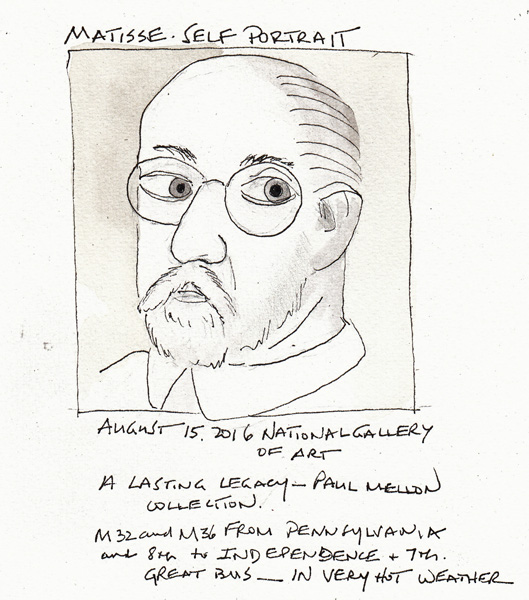 MATISSE. SELF PORTRAIT
AUGUST 15. 2016 NATIONAL GALLERY
OF ART
A LASTING LEGACY - PAUL MELLON
COLLECTION.
M32 and M36 FROM PENNSYLVANIA
and 8th to INDEPENDENCE + 7th.
GREAT BUS - IN VERY HOT WEATHER